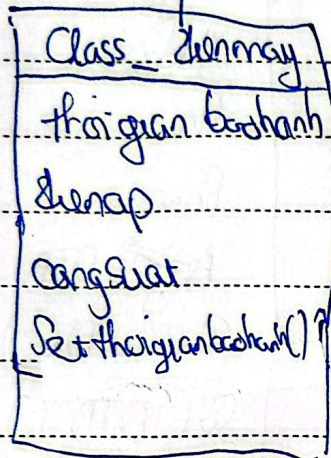 Class_ dienmay
thoigian baohanh
dienap
congsuat
Set thoigianbaohanh()